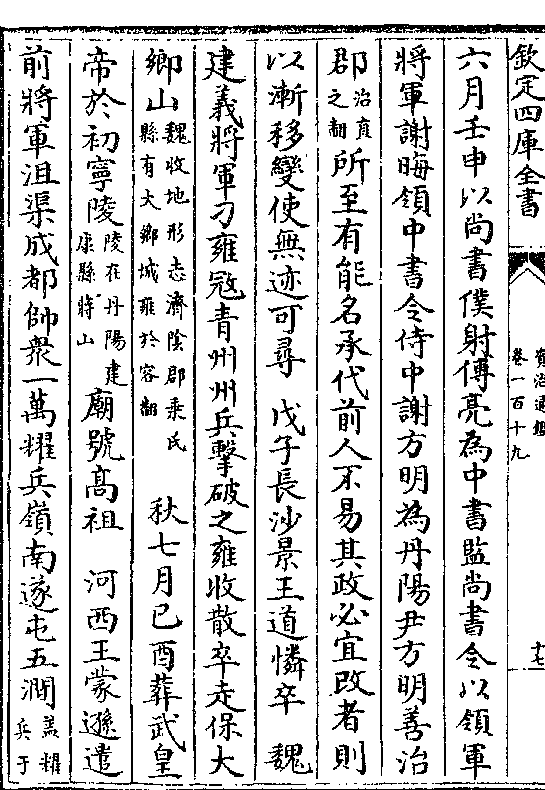 欽定四庫全書
資治通鑑
卷一百十九
十七
六月壬申以尚書僕射傅亮為中書監尚書令以領軍
將軍謝晦領中書令侍中謝方明為丹陽尹方明善治
郡治直之翻所至有能名承代前人不易其政必宜改者則
以漸移變使無迹可尋 戊子長沙景王道憐卒 魏
建義將軍刁雍冦青州州兵擊破之雍收散卒走保大
鄉山魏收地形志濟陰郡乘氏縣有大鄉城雍於容翻 秋七月已酉葬武皇
帝於初寧陵陵在丹陽建康縣蔣山廟號髙祖 河西王蒙遜遣
前將軍沮渠成都帥衆一萬耀兵嶺南遂屯五澗蓋耀兵于